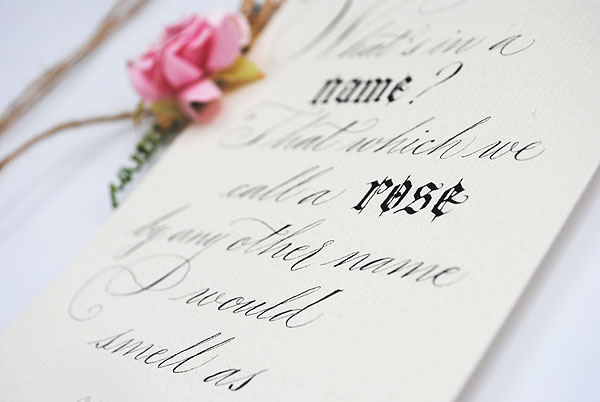 What's in a
name?
That which we
call a rose
by any other name
I would
smell as